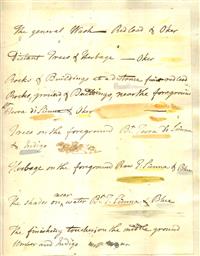 The general Wash — Red lead & Oker
Distant Trees & Herbage — Oker
Rocks & Buildings at a distance red lead
Rocks, ground & Buildings, near the foreground
Terra di Sienna & Oker
Trees on the foreground Bt. Terra di Sienna
& Indigo
Herbage on the foreground Raw T. Sienna & Blue
near
The shades on water Bt. T. Sienna & Blue
The finishing touches in the middle ground
Umber and Indigo